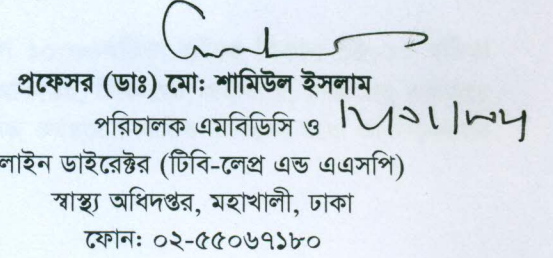 প্রফেসর (ডাঃ) মোঃ শামিউল ইসলাম
পরিচালক এমবিডিসি ও
লাইন ডাইরেক্টর (টিবি-লেপ্র এন্ড এএসপি)
স্বাস্থ্য অধিদপ্তর, মহাখালী, ঢাকা
ফোন: ০২-৫৫০৬৭১৮০